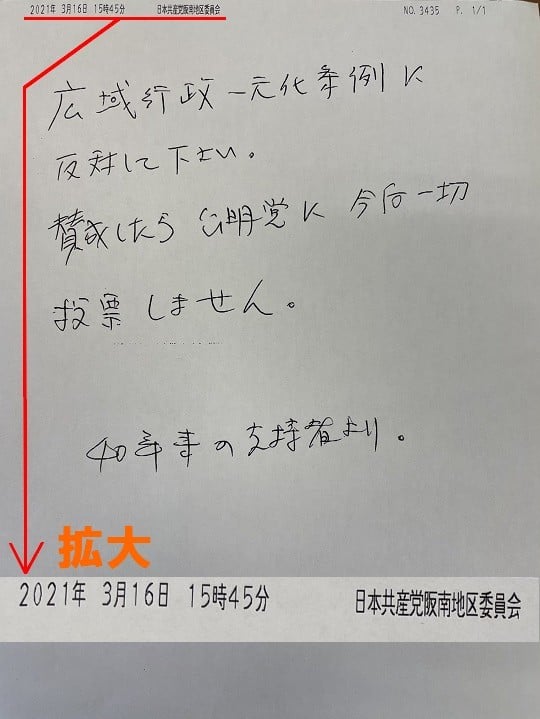 2021年 3月16日 15時45分 日本共産党阪南地区委員会 NO.3435 P. 1/1
広域行政一元化条例に
反対して下さい。
賛成したら公明党に今后一切
投票しません。
40年来の支持者より。
拡大
2021年 3月16日 15時45分 日本共産党阪南地区委員会